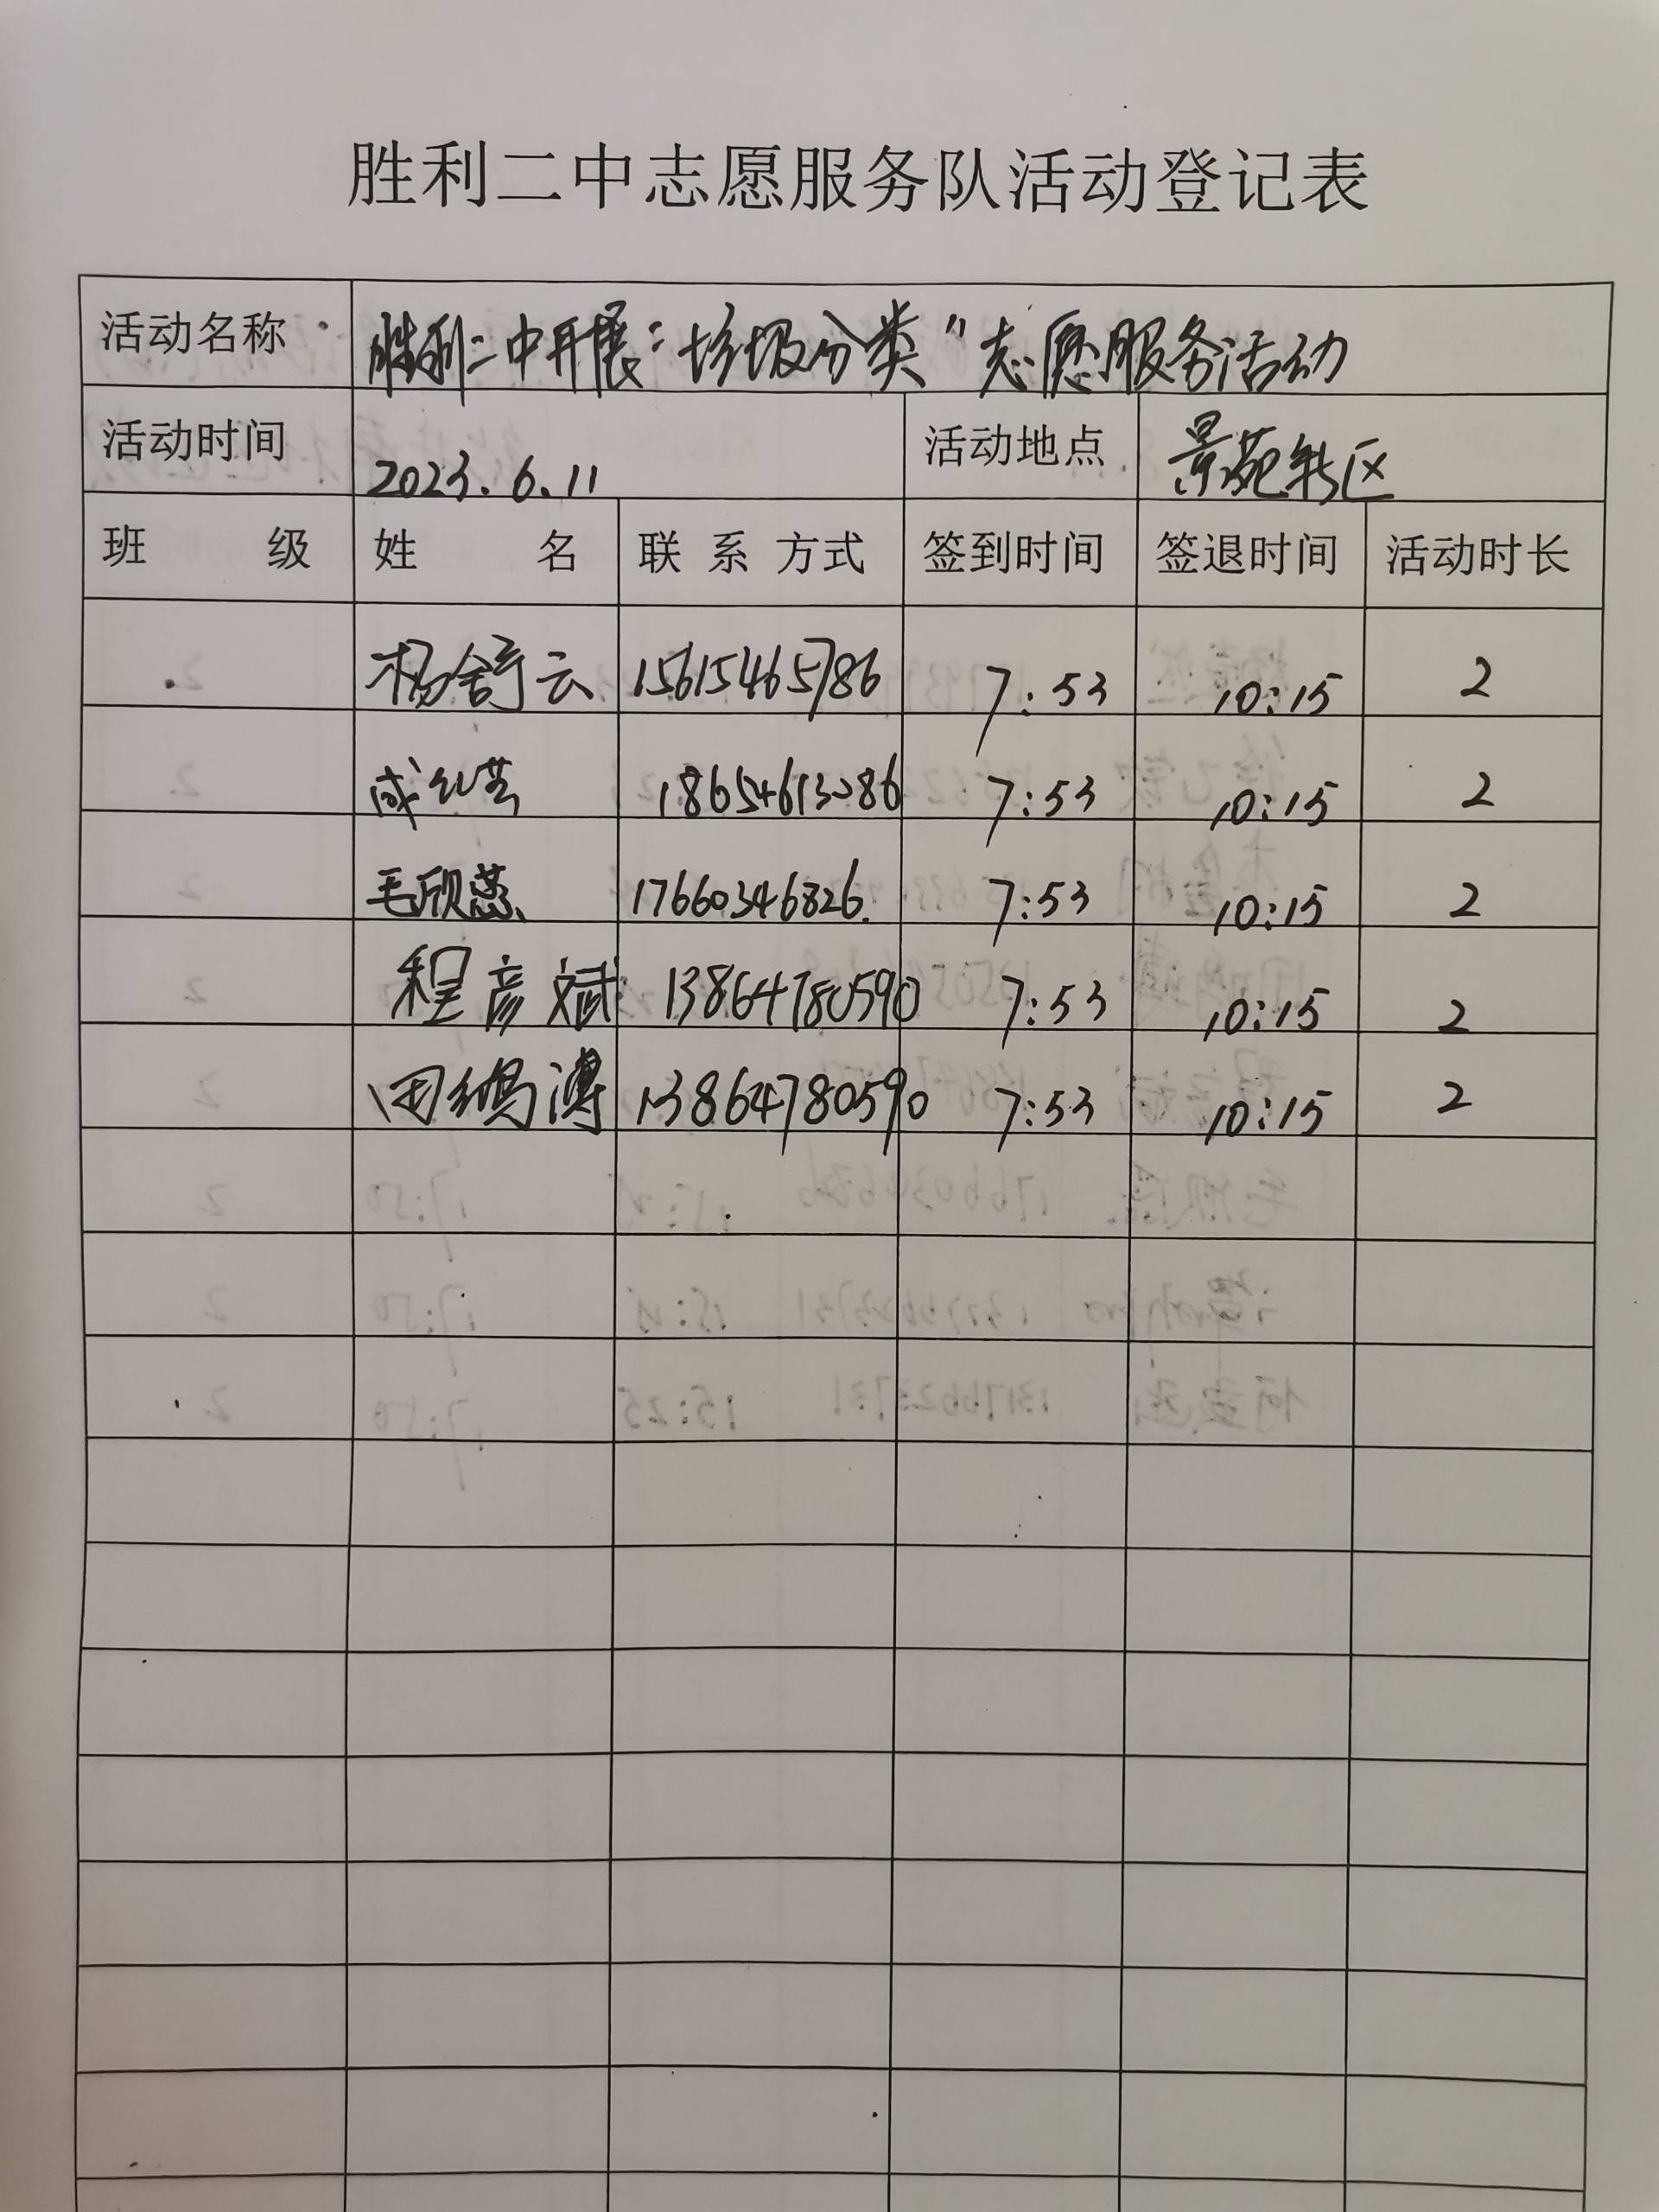 胜利二中志愿服务队活动登记表
活动名称 胜利二中开展“垃圾分类”志愿服务活动
活动时间 2023.6.11 活动地点 景苑社区
班 级 姓 名 联系方式 签到时间 签退时间 活动时长
杨舒云 15615465786 7:53 10:15 2
7:53 10:15 2
毛欣蕊 17660346826. 7:53 10:15 2
程彦斌 13864780590 7:53 10:15 2
田 13864780590 7:53 10:15 2